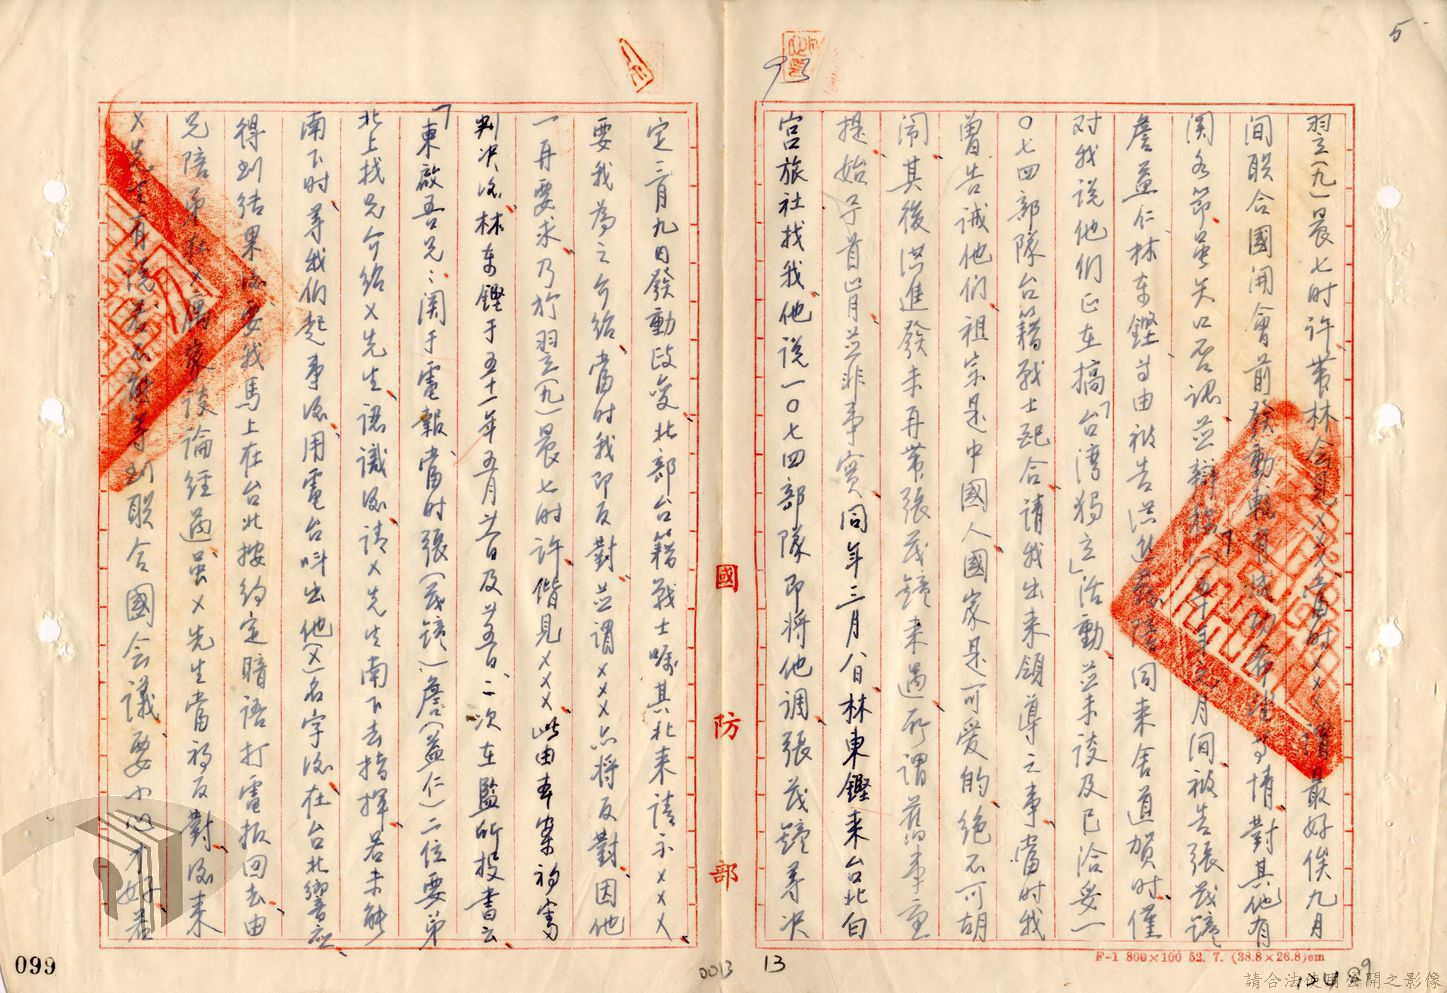 5
93
翌(九)晨七时许帶林会見×××当时×××謂最好俟九月
间联合國開會前發動較有成功希望等情對其他有
関各節虽矢口否認並辯稱「五十年元月间被告張茂鐘
詹益仁林东鏗等由被告洪進發陪同来舍道贺时僅
对我说他们正在搞「台湾独立」活動並未谈及已洽妥一
〇七四部隊台籍战士配合请我出来领導之事當时我
曽告诫他们祖宗是中國人國家是可爱的绝不可胡
闹其後洪進發未再带張茂鐘来過所谓舊事重
提始于首肯並非事實同年三月八日林東鏗来台北白
宫旅社找我他说一〇七四部隊即将他调張茂鐘等决
國防部
定三月九日發動政变北部台籍戰士嘱其北来请示×××
要我為之介绍當时我即反對並謂×××亦将反對因他
一再要求乃於翌(九)晨七时许偕見×××此由本案初審
判决後林东鏗于五十一年五月廿日及廿五日二次在監所投書云
「東啟吾兄:関于電報當时張(茂鐘)詹(益仁)二位要弟
北上找兄介绍×先生認識後请×先生南下去指揮若未能
南下时等我们起事後用電台呌出他(×)名字後在台北響应
得到结果後要我馬上在台北按约定暗语打電报回去由
兄陪弟赴×寓家谈論经過虽×先生當初反對後来
×先生有说若不能等到联合國会議要小心才好若
F-1 800×100 52. 7. (38.8×26.8)cm
099
0013
13
請合法使用公開之影像